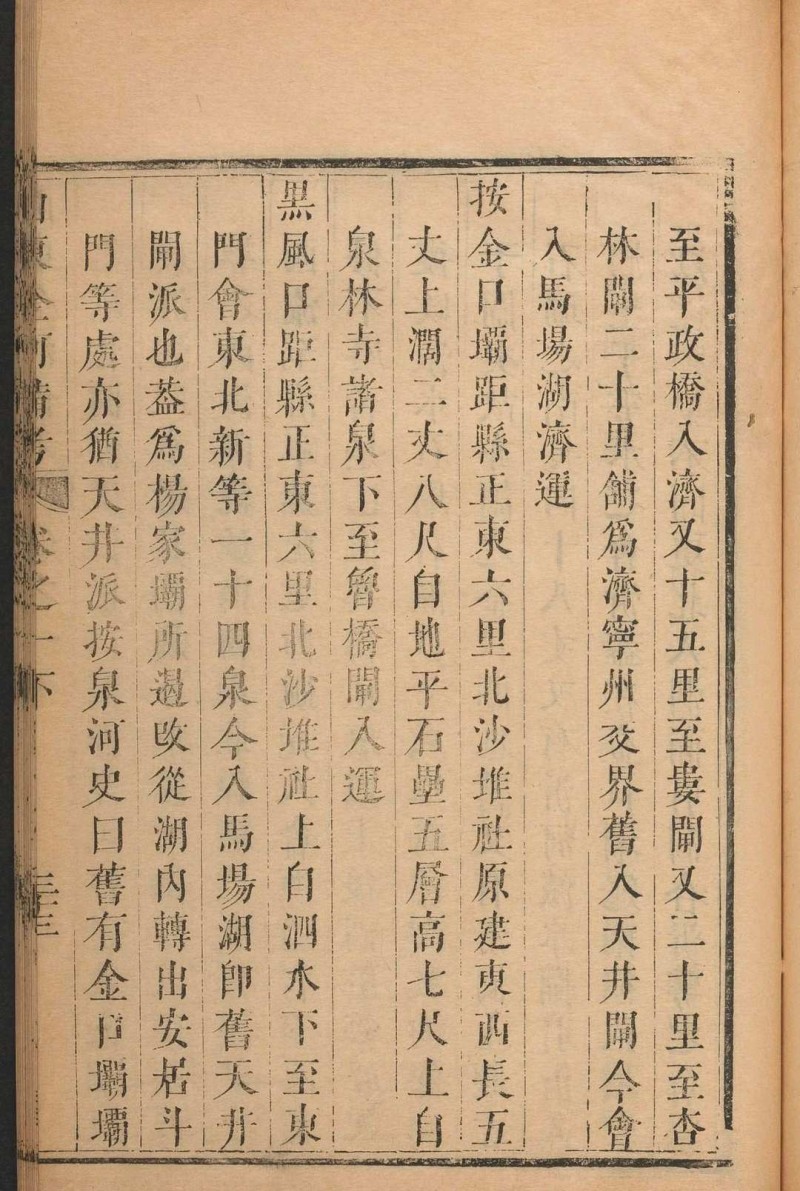 至平政橋入濟又十五里至婁閘又二十里至杏
林閘二十里舖爲濟寧州交界舊入天井閘今會
入馬場湖濟運
按金口壩距縣正東六里北沙堆社原建東西長五
丈上濶二丈八尺自地平石壘五層高七尺上自
泉林寺諸泉下至魯橋閘入運
黑風口距縣正東六里北沙堆社上自泗水下至東
門會東北新等一十四泉今入馬場湖卽舊天井
閘派也葢爲楊家壩所遏改從湖內轉出安居斗
門等處亦猶天井派按泉河史曰舊有金口壩壩
山東全河備考 卷之二下 三十三